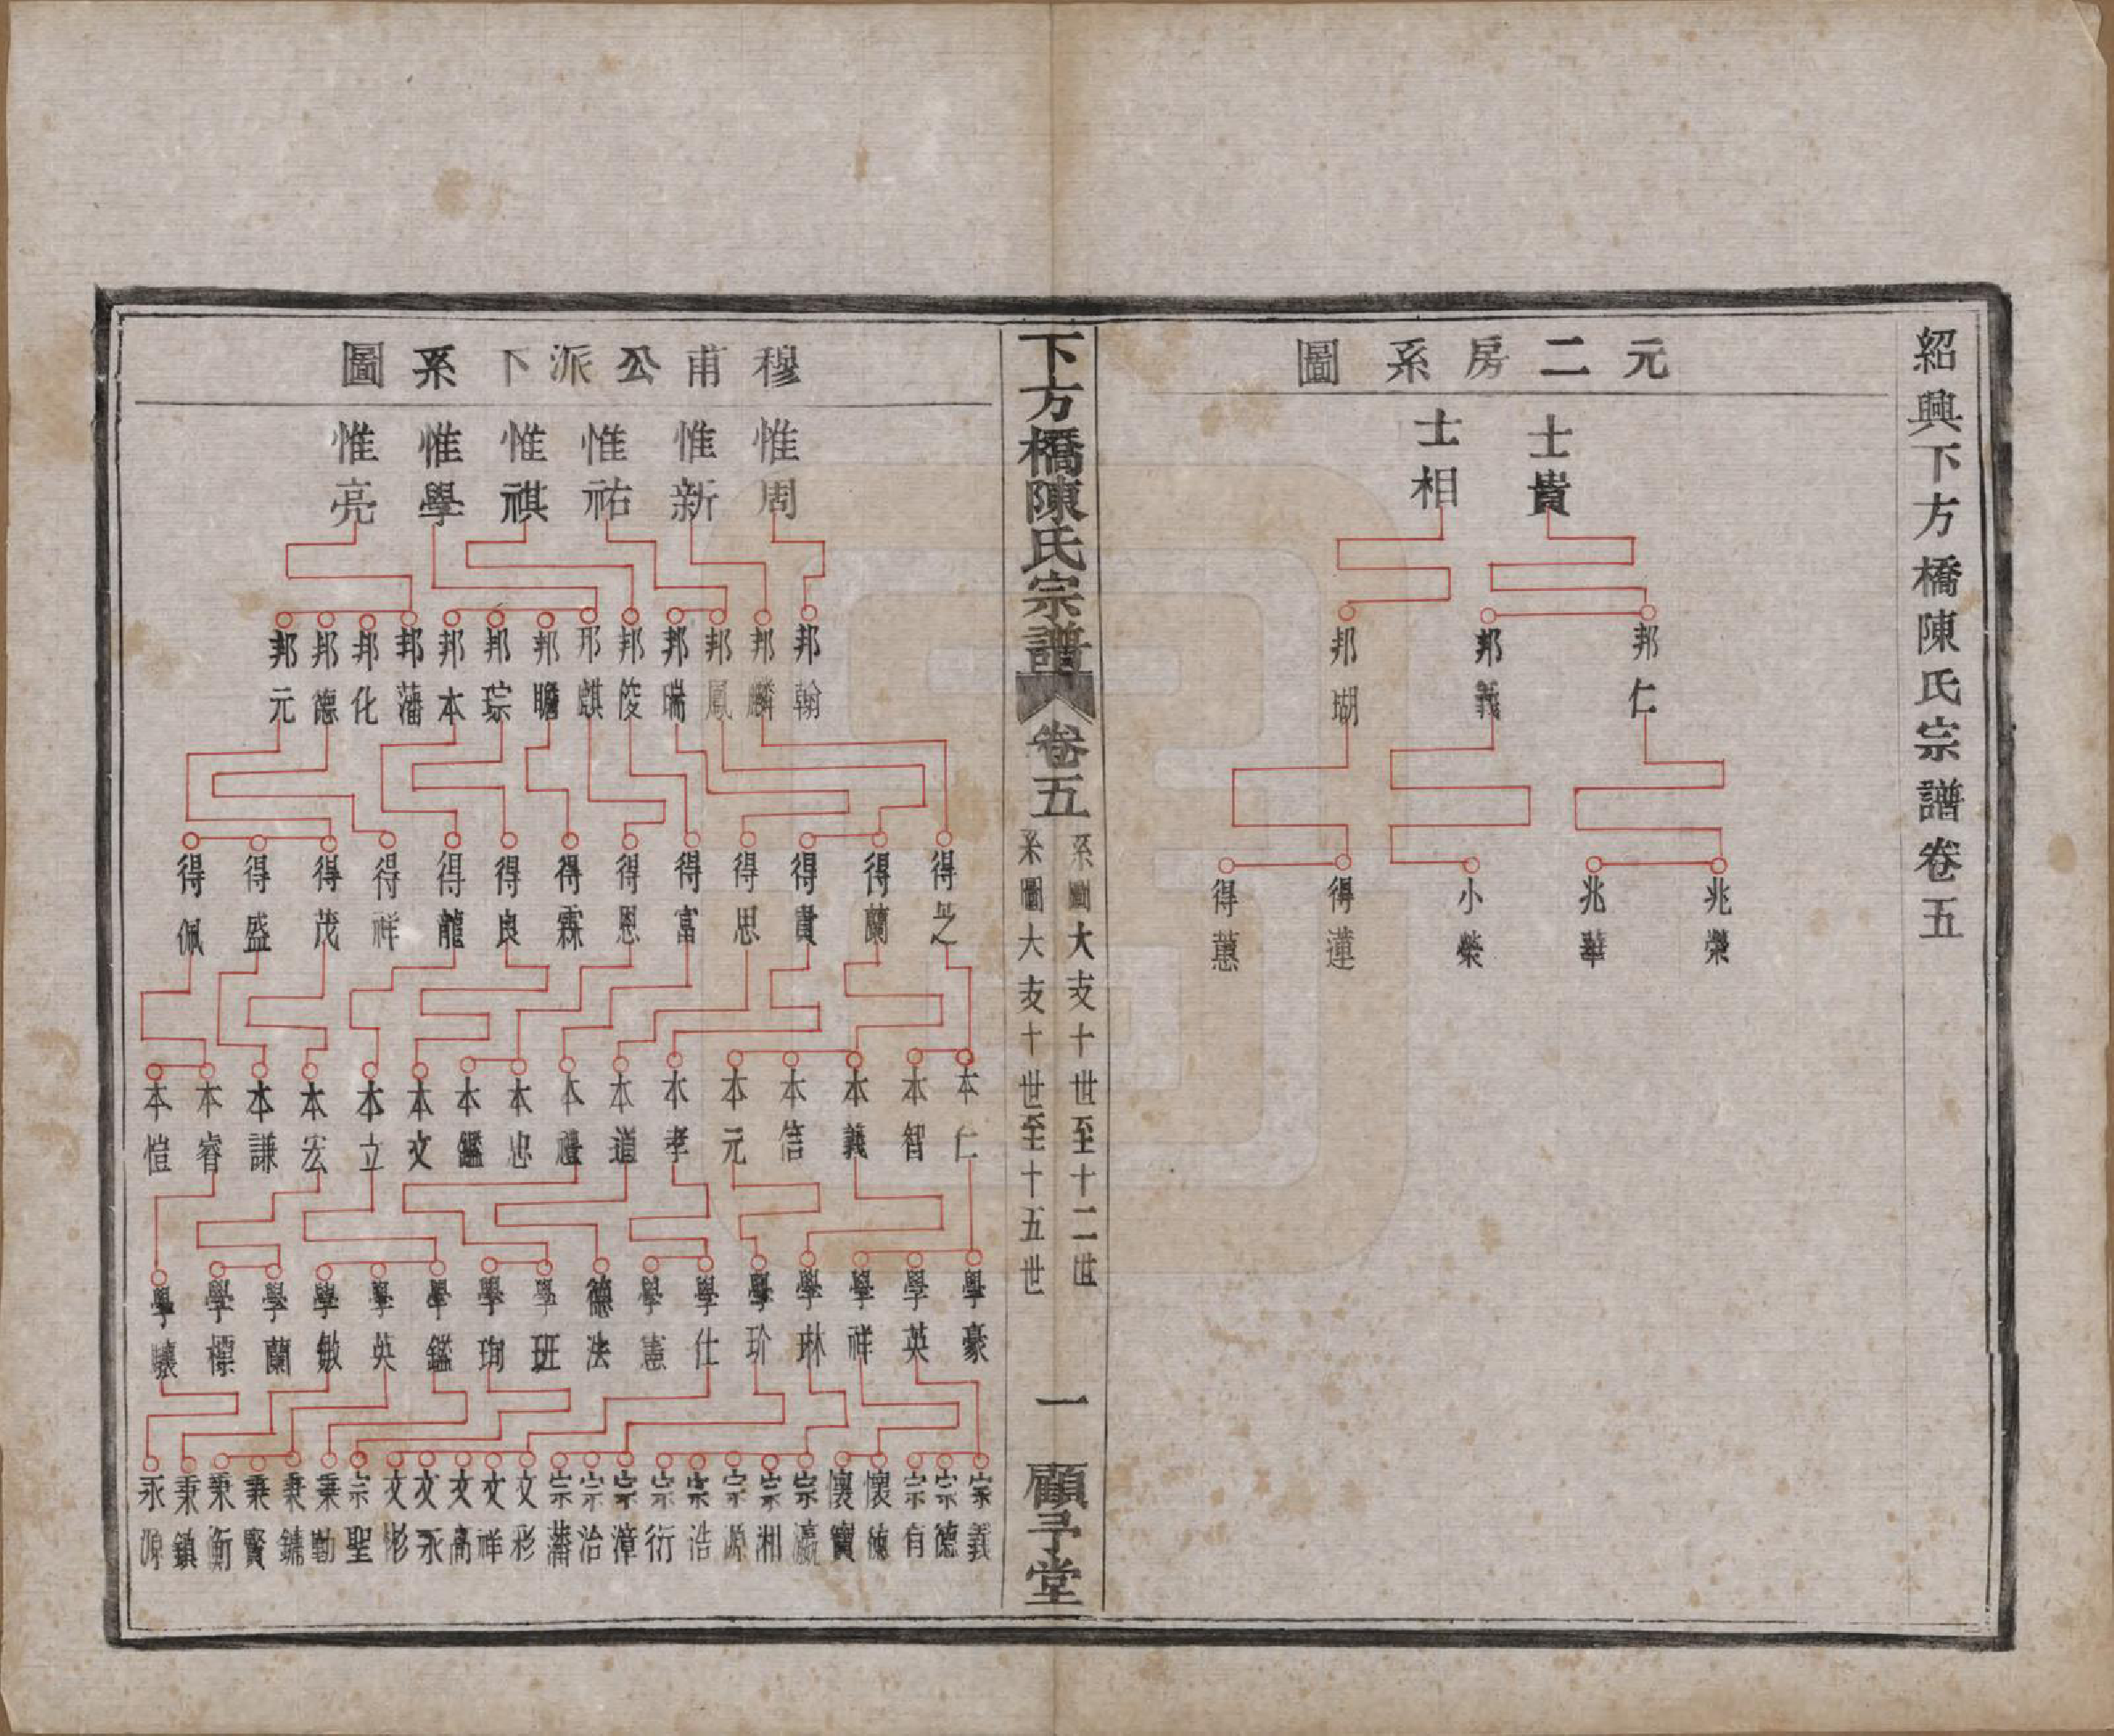 紹興下方橋陳氏宗譜卷五
元二房系圖
士貴 士相
邦仁 邦義 邦瑚
兆榮 兆華 小榮 得蓮 得蕙
下方橋陳氏宗譜 卷五
系圖大支十世至十二世
系圖大支十世至十五世
一 顧予堂
穆甫公派下系圖
惟周 惟新 惟祐 惟祺 惟學 惟亮
邦翰 邦麟 邦鳳 邦瑞 邦俊 邦麒 邦瞻 邦琮 邦本 邦藩 邦化 邦德 邦元
得之 得蘭 得貴 得思 得富 得恩 得霖 得良 得龍 得祥 得茂 得盛 得佩
本仁 本智 本義 本信 本元 本孝 本道 本禮 本忠 本鑑 本文 本立 本宏 本謙 本睿 本愷
學豪 學英 學祥 學琳 學玠 學仕 學憲 德法 學班 學珣 學鑑 學英 學敏 學蘭 學標 學驤
宗義 宗德 宗有 懷德 懷寶 宗瀛 宗湘 宗源 宗浩 宗衍 宗漳 宗治 宗藩 文彩 文祥 文高 文永 文彬 宗聖 秉勳 秉鏞 秉賢 秉衡 秉鎮 永源